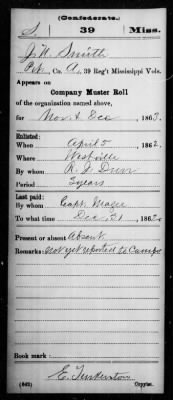 (Confederate.)
S 39 Miss.
J. W. Smith
Pvt, Co. A, 39 Reg't Mississippi Vols.
Appears on
Company Muster Roll
of the organization named above,
for Nov & Dec, 1863.
Enlisted:
When April 5, 1862.
Where Westville
By whom R. J. Durr
Period 3 years
Last paid:
By whom Capt. Magee
To what time Dec 31, 1862.
Present or absent Absent
Remarks: Not yet reported to Camps
Book mark:
(642) Copyist.